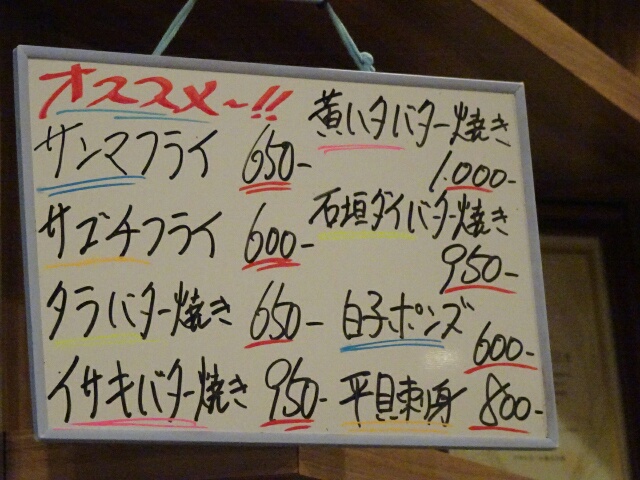 オススメ〜!!
サンマフライ 650-
サゴチフライ 600-
タラバター焼き 650-
イサキバター焼き 950-
黄ハタバター焼き
1.000-
石垣ダイバター焼き
950-
白子ポンズ
600-
平貝刺身 800-